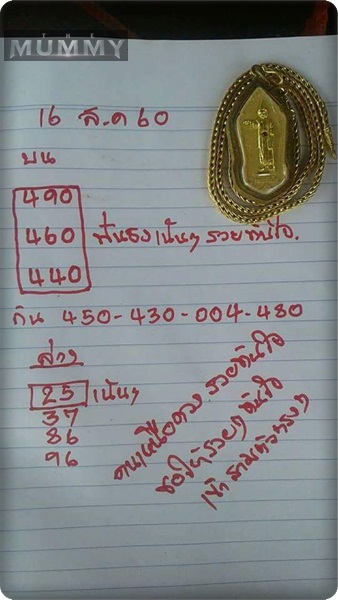 MUMMY
16 ส.ค 60
บน
490
460 ฟันธง เน้นๆ รวยทันใจ.
440
กัน 450-430-004-480
ล่าง
25 เน้นๆ
37
86
96
คนเหนือดวง รวยทันใจ
ขอให้รวยๆ ทันใจ
เข้า สามตัวตรงๆ